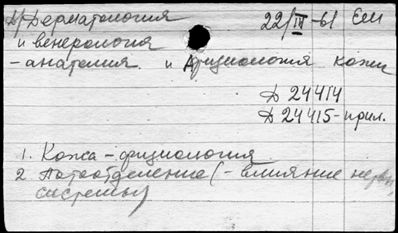 Дерматология
и венерология
22/IV-61 Еш
- анатомия и физиология кожи
Д 24414
Д 24415 - прил.
1. Кожа - физиология
2 Потоотделение (- влияние нервн.
системы)